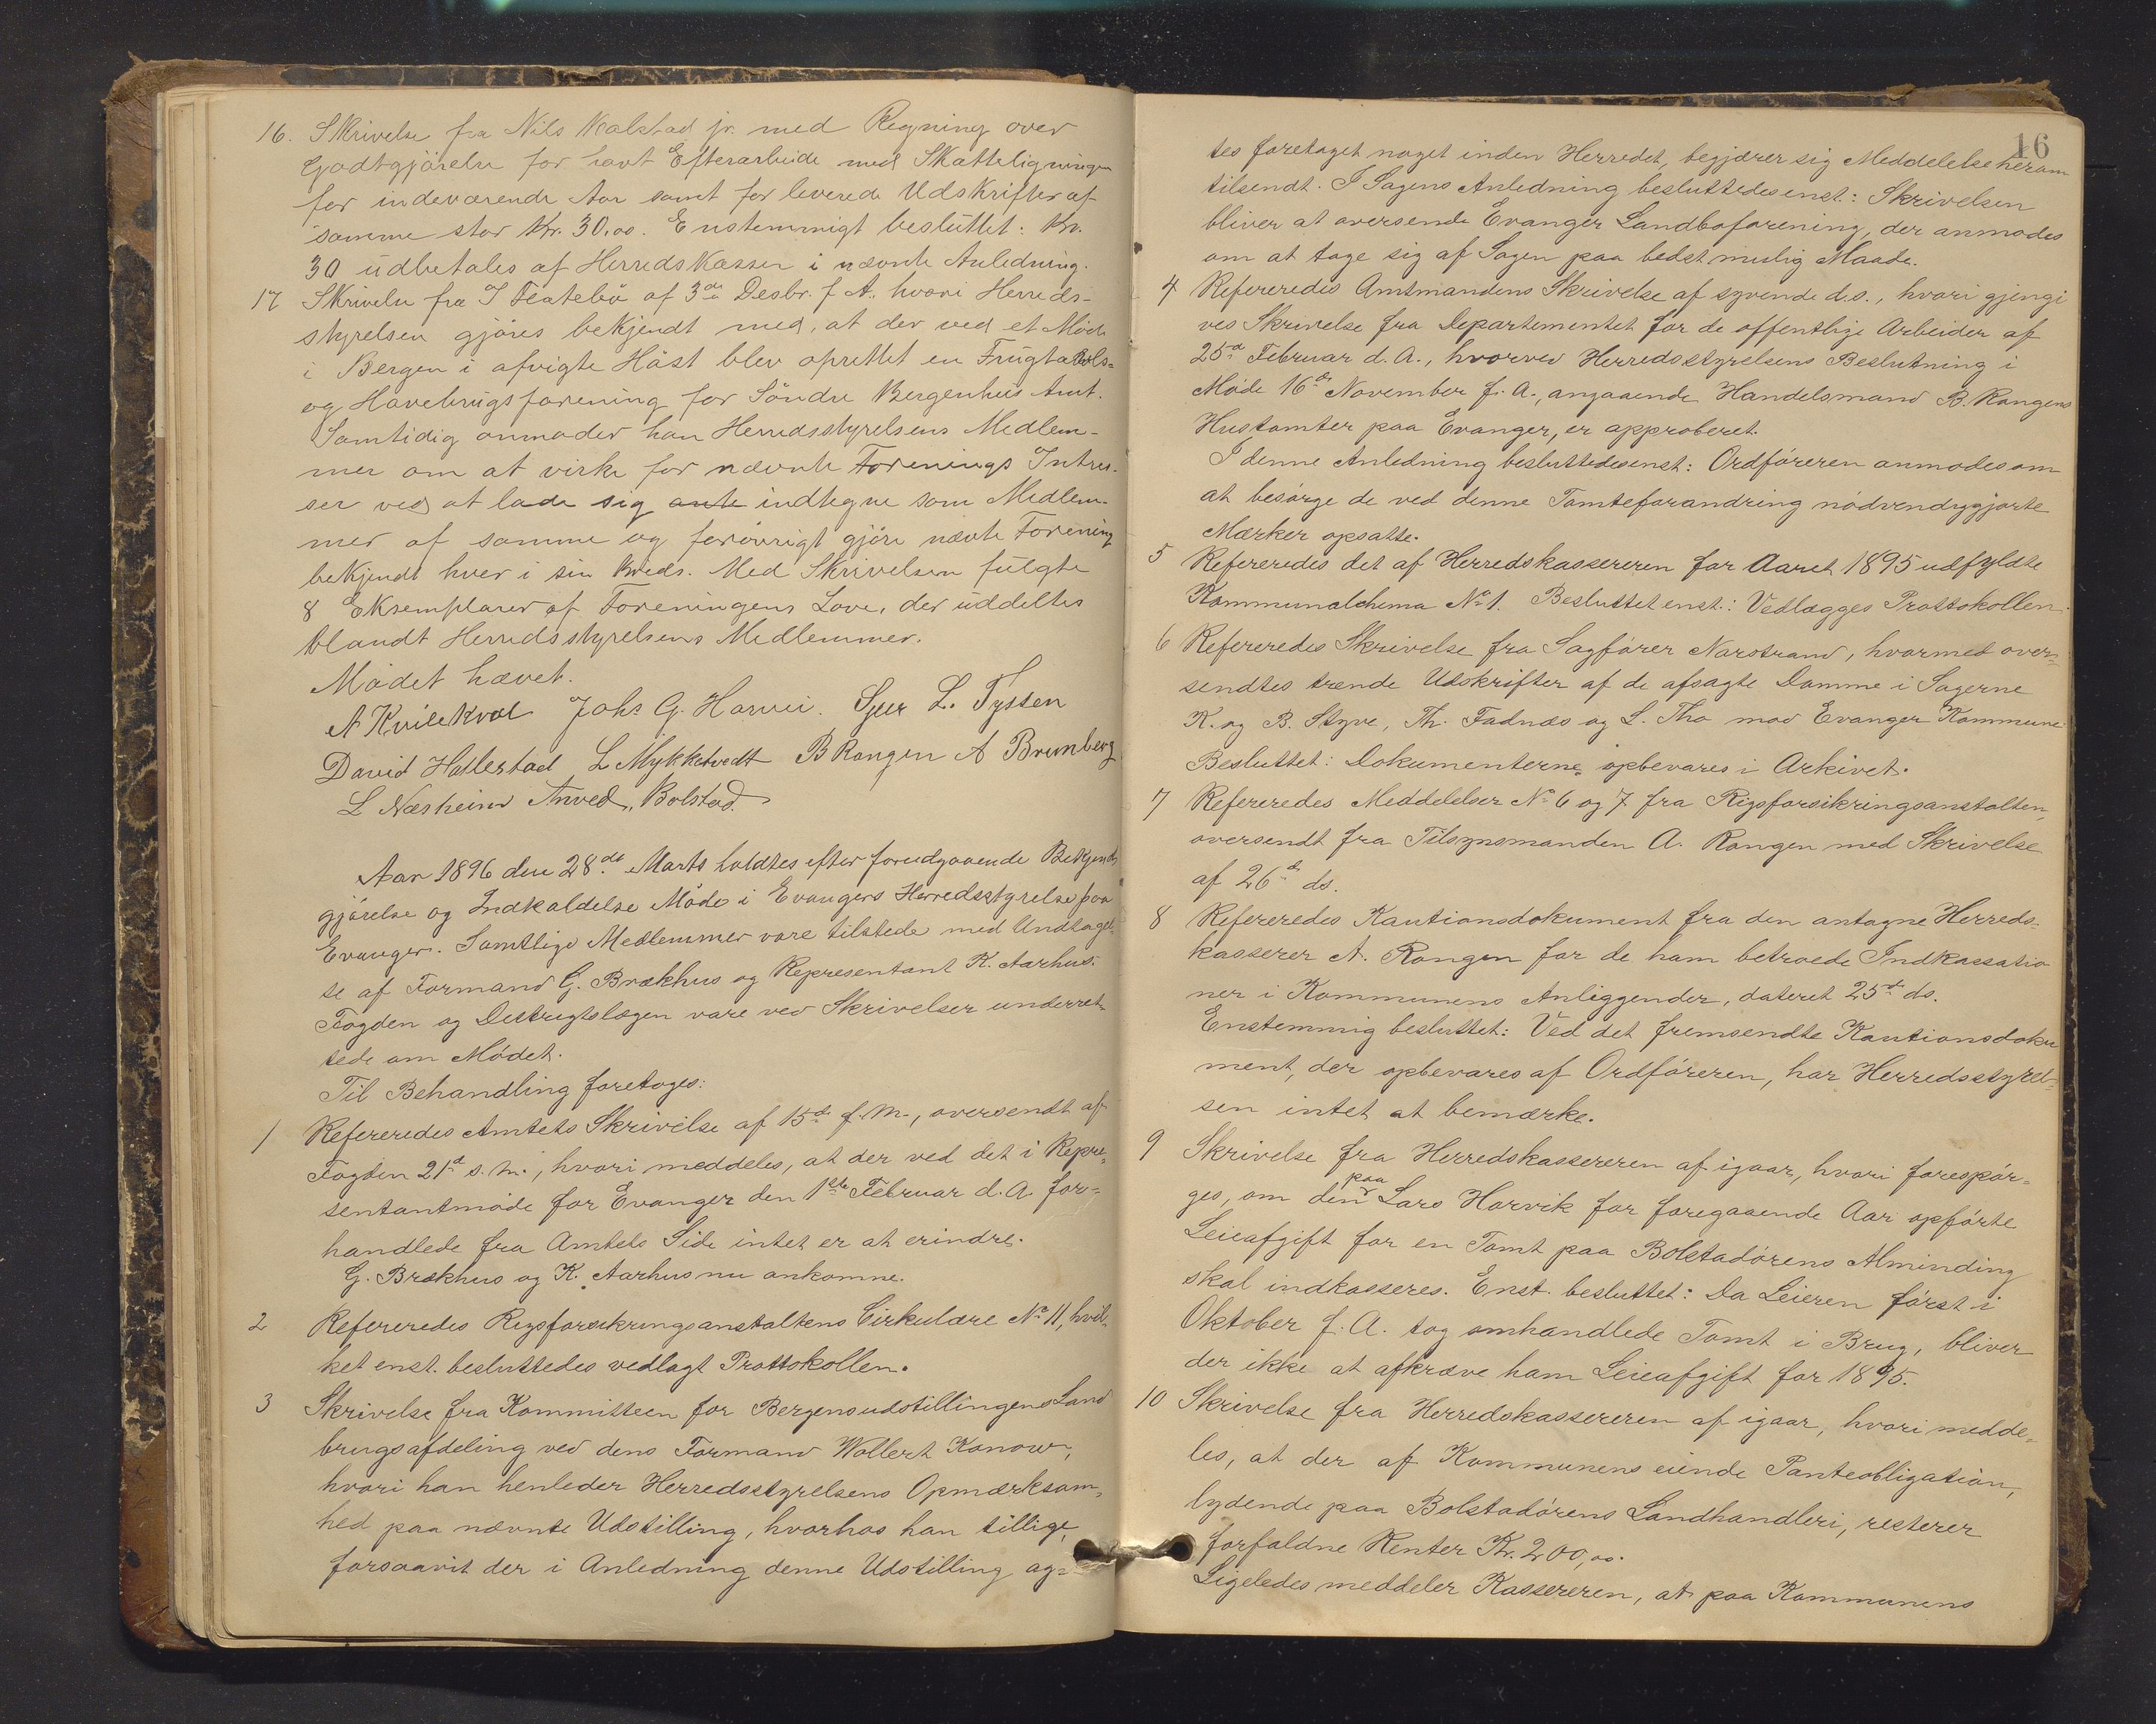 16. Skrivelse fra Nils Kalstad jr. med Regning over
Godtgjörelse for havt Efterarbeide med Skatteligningen
for indeværende Aar samt for leverede Udskrifter af
samme stor Kr. 30.00. Enstemmigt besluttet: Kr.
30 udbetales af Herredskassen i nævnte Anledning.
17 Skrivelse fra I 3de Desbr. f. A. hvori Herreds-
styrelsen gjöres bekjendt med, at der ved et Möde
i Bergen i afvigte Höst blev oprettet en Frugtavls-
og Havebrugsforening for Söndre Bergenhus Amt.
Samtidig anmoder han Herredsstyrelsens Medlem-
mer om at virke for nævnte Forenings Intres-
ser ved at lade sig indtegne som Medlem-
mer af samme og forövrigt gjöre nævnte Forening
bekjendt hver i sin Kreds. Med Skrivelsen fulgte
8 Eksemplarer af Foreningens Love, der uddeltes
blandt Herredsstyrelsens Medlemmer.
Mödet hævet.
A Kvilekval Johs G. Horvei. Sjur L. Fyssen
David Hallestad L Mykketvedt B Rongen A Brunborg
L Næsheim Anved. Bolstad.
Aar 1896 den 28de Marts holdtes efter forudgaaende Bekjendt-
gjörelse og Indkaldelse Möde i Evangers Herredsstyrelse paa
Evanger. Samtlige Medlemmer vare tilstede med Undtagel-
se af Formand G. Brækhus og Representant K. Aarhus.
Fogden og Distriktslægen vare ved Skrivelser underret-
tede om Mödet.
Til Behandling foretoges:
1 Refereredes Amtets Skrivelse af 15de f. M., oversendt af
Fogden 21de s. M., hvori meddeles, at der ved det i Repre-
sentantmöde for Evanger den 1ste Februar d. A. for-
handlede fra Amtets Side intet er at erindre.
G. Brækhus og K. Aarhus nu ankomne.
2 Refereredes Rigsforsikringsanstaltens Cirkulære No 11, hvil-
ket enst. besluttedes vedlagt Prottokollen.
3 Skrivelse fra Kommitteen for Bergensudstillingens Land
brugsafdeling ved dens Formand Wollert Konow,
hvori han henleder Herredsstyrelsens Opmærksom-
hed paa nævnte Udstilling, hvorhos han tillige,
forsaavit der i Anledning denne Udstilling ag-
16
tes foretaget noget inden Herredet, begjærer sig Meddelelse herom
tilsendt. I Sagens Anledning besluttedes enst.: Skrivelsen
bliver at oversende Evanger Landboforening, der anmodes
om at tage sig af Sagen paa bedst mulig Maade.
4 Refereredes Amtmandens Skrivelse af syvende ds., hvori gjengi
ves Skrivelse fra Departementet for de offentlige Arbeider af
25de Februar d. A., hvorved Herredsstyrelsens Beslutning i
Möde 16de November f. A., angaaende Handelsmand B. Rongens
Hustomter paa Evanger, er approberet.
I denne Anledning besluttedes enst: Ordföreren anmodes om
at besörge de ved denne Tomteforandring nödvendiggjorte
Mærker opsatte.
5 Refereredes det af Herredskassereren for Aaret 1895 udfyldte
Kommunalchema No 1. Besluttet enst.: Vedlægges Prottokollen.
6 Refereredes Skrivelse fra Sagförer Narstrand, hvormed over-
sendtes trende Udskrifter af de afsagte Domme i Sagerne
K. og B. Styve, Th. Fadnæs og L. Tho mod Evanger Kommune
Besluttet: Dokumenterne opbevares i Arkivet.
7 Refereredes Meddelelser No 6 og 7 fra Rigsforsikringsanstalten,
oversendt fra Tilsynsmanden A. Rongen med Skrivelse
af 26de ds.
8 Refereredes Kautionsdokument fra den antagne Herreds-
kasserer A. Rongen for de ham betroede Indkassatio
ner i Kommunens Anliggender, dateret 25de ds.
Enstemmig besluttet: Ved det fremsendte Kautionsdoku
ment, der opbevares af Ordföreren, har Herredsstyrel-
sen intet at bemærke.
9 Skrivelse fra Herredskassereren af igaar, hvori forespör-
ges, om den paa Lars Horvik for foregaaende Aar opförte
Leieafgift for en Tomt paa Bolstadörens Alminding
skal indkasseres. Enst. besluttet: Da Leieren först i
Oktober f. A. tog omhandlede Tomt i Brug, bliver
der ikke at afkræve ham Leieafgift for 1895.
10 Skrivelse fra Herredskassereren af igaar, hvori medde-
les, at der af Kommunens eiende Panteobligation,
lydende paa Bolstadörens Landhandleri, resterer
forfaldne Renter Kr. 200,00.
Ligeledes meddeler Kassereren, at paa Kommunens